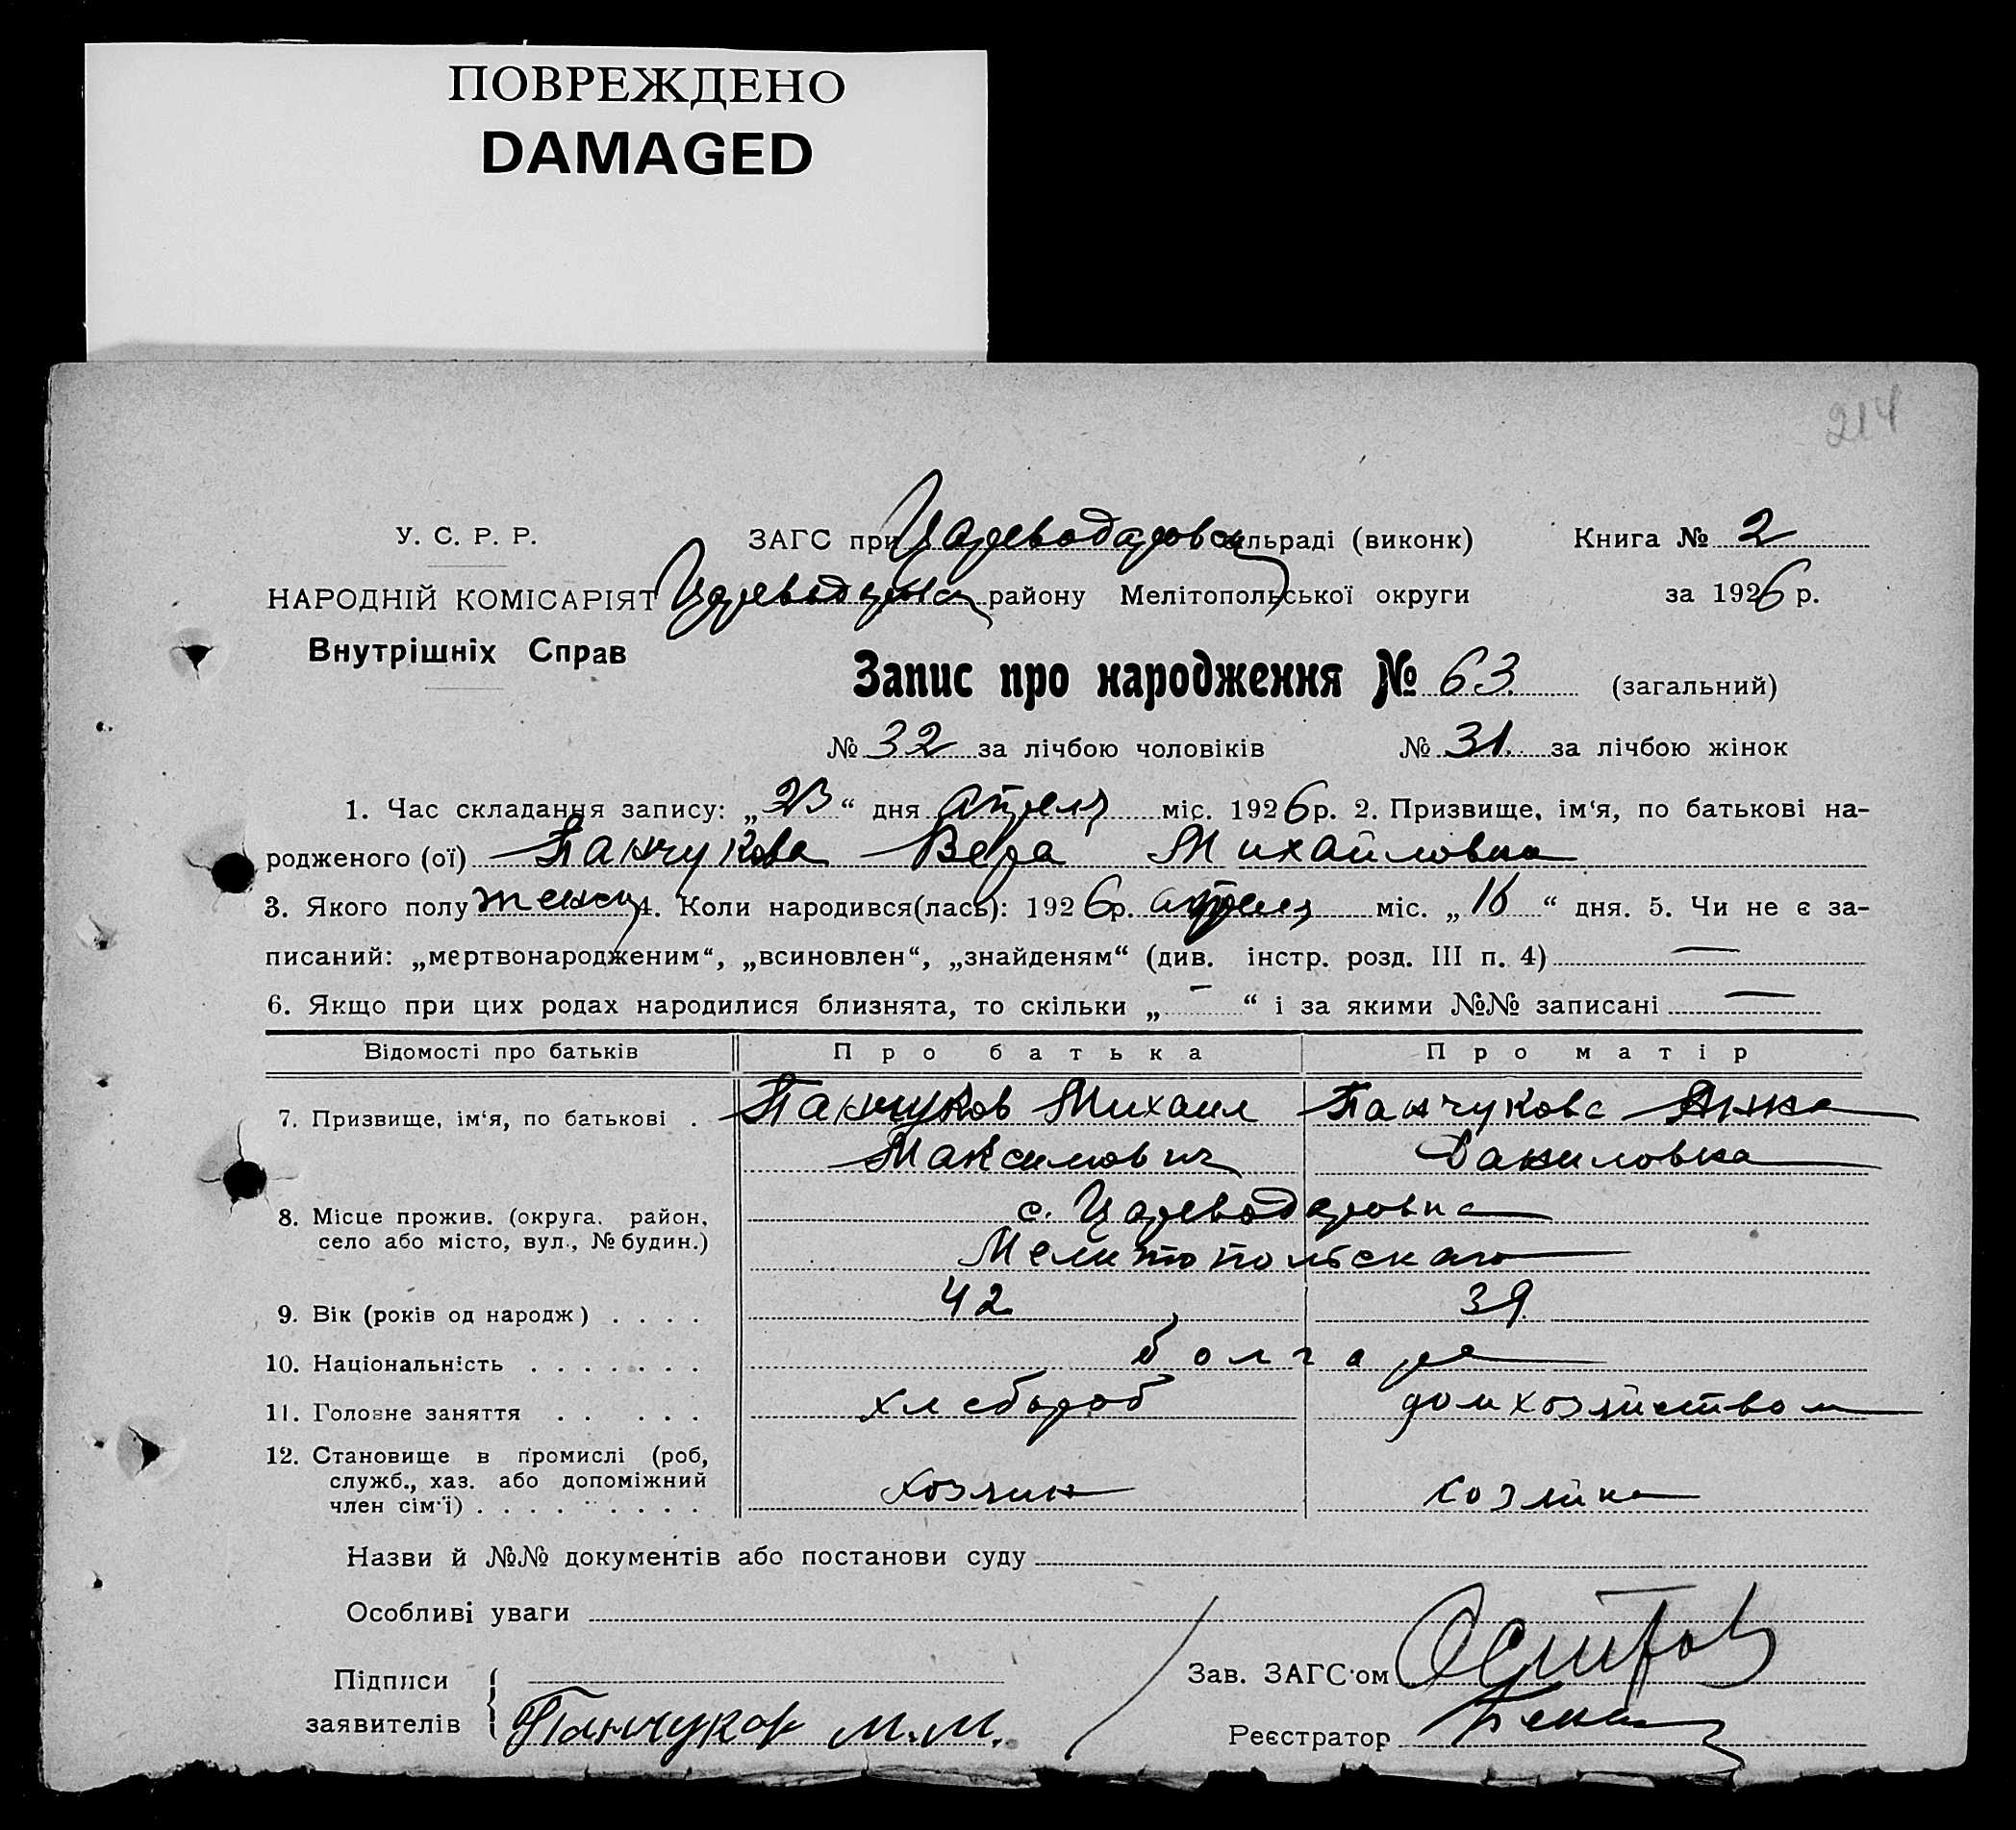 ПОВРЕЖДЕНО
DAMAGED
214
У. С. Р. Р.
ЗАГС при Цареводаровск сільраді (виконк) Книга № 2
НАРОДНІЙ КОМІСАРІЯТ Цареводарск району Мелітопольської округи за 1926 р.
Внутрішніх Справ
Запис про народження № 63 (загальний)
№ 32 за лічбою чоловіків № 31. за лічбою жінок
1. Час складання запису: „23“ дня апреля міс. 1926 р. 2. Призвище, ім‘я, по батькові на-
родженого (ої) Панчукова Вера Михайловна
3. Якого полу женск 4. Коли народився(лась): 1926 р. апреля міс. „16“ дня. 5. Чи не є за-
писаний: „мертвонародженим“, „всиновлен“, „знайденям“ (див. інстр. розд. III п. 4) —
6. Якщо при цих родах народилися близнята, то скільки „-“ і за якими №№ записані —
Відомості про батьків Про батька Про матір
7. Призвище, ім‘я, по батькові . Панчуков Михаил Панчукова Анна
Максимович Даниловна
8. Місце прожив. (округа, район, с. Цареводаровка
село або місто, вул., № будин.) Мелитопольскаго
9. Вік (років од народж) . . . . 42 39.
10. Національність . . . . . . . болгаре
11. Головне заняття . . . . . хлебороб домхозяйством
12. Становище в промислі (роб,
служб., хаз. або допоміжний хозяин хозяйка
член сім‘ї) . . . . . . . . .
Назви й №№ документів або постанови суду
Особливі уваги
Підписи Зав. ЗАГС‘ом Осипов
заявителів Панчуков М.М. Реєстратор